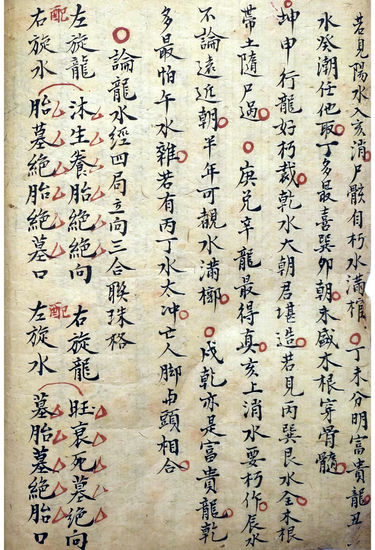 若見陽水入亥消尸骸自朽水滿棺丁未分明富貴龍丑
水癸潮任他取丁多最喜巽卯朝未盛木根穿骨髓
坤申行龍好朽裁乾水大朝君堪造若見丙巽艮水全木根
帶土隨尸過庚兌辛龍最得真亥上消水要朽作辰水
不論遠近朝半年可觀水滿槨戌乾亦是富貴龍乾
多最怕午水雜若有丙丁水太冲亡人脚曲頭相合
論龍水經四局立向三合聯珠格
左旋龍 沐生養胎絕絕向 右旋龍 旺衰死墓絕向
配 配
右旋水 胎墓絕胎絕墓口 左旋水 墓胎墓絕胎口